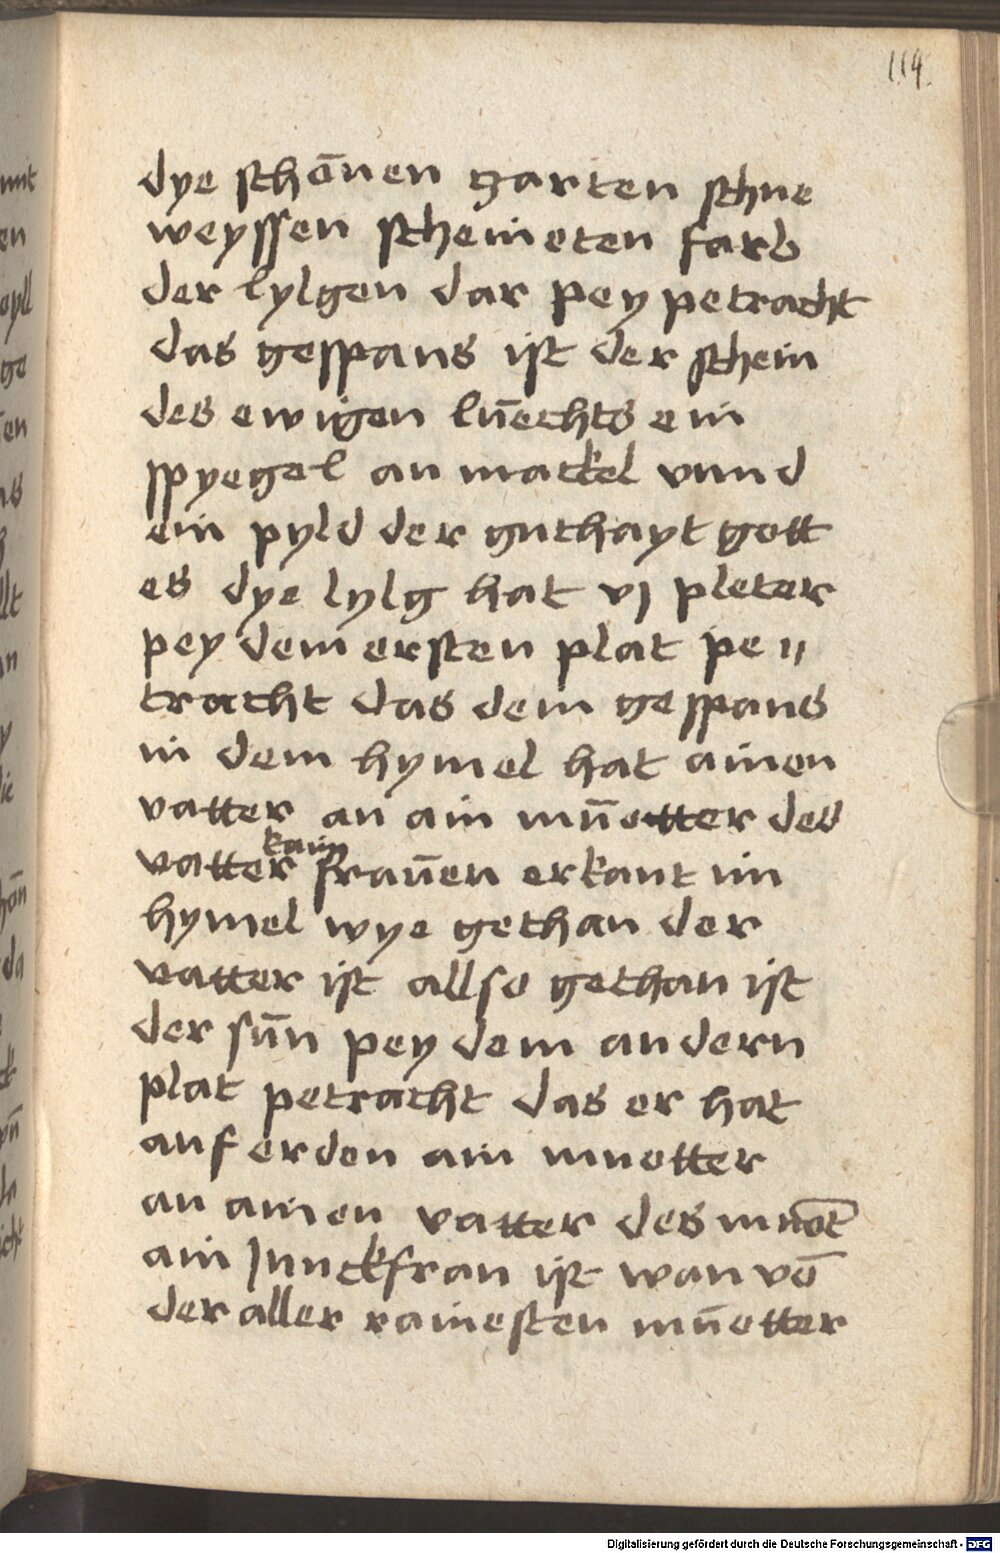 114.
dye schonen garten schne
weyssen scheineten farb
der lylgen dar pey petracht
das gespans ist der schein
des ewigen lūechts ein
spyegel an mackel vnnd
ein pyld der guthayt gott
es dye lylg hat vj pleter
pey dem ersten plat pe〃
tracht das dem gespans
in dem hymel hat ainen
vatter an ain mūetter des
vatter kain fraūen erkant im
hymel wye gethan der
vatter ist allso gethan ist
der sūn pey dem andern
plat petracht das er hat
auf erden ain muetter
an ainen vatter des muot
ain Junckfrau ist wan vō
der aller rainesten mūetter
Digitalisierung gefördert durch die Deutsche Forschungsgemeinschaft - DFG